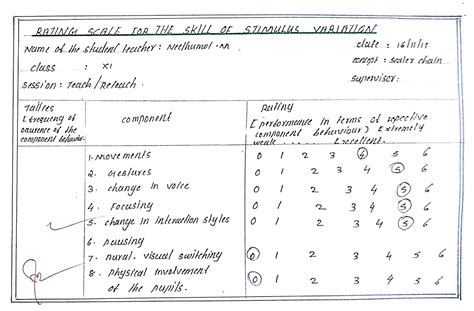 RATING SCALE FOR THE SKILL OF STIMULUS VARIATION
Name of the student teacher: Neethumol
class : XI
Session: Teach / Reteach.
date : 16/11/17
supervisor:
Tallies
[frequency of
the
component behavior
component
Rating
[performance in terms of
component behaviour) Extremely
weak ..... Excellent.
1. movements 0 1 2 3 4 5 6
2. Gestures 0 1 2 3 4 5 6
3. change in voice 0 1 2 3 4 5 6
4. Focusing 0 1 2 3 4 5 6
5. change in interaction styles 0 1 2 3 4 5 6
6. pausing
7. visual switching 0 1 2 3 4 5 6
8. physical involvement 0 1 2 3 4 5 6
of the pupils.